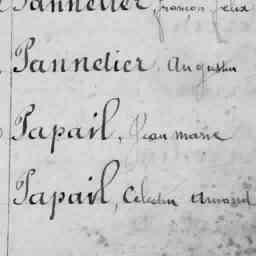 Pannetier, françois felix
Pannetier, Augustin
Papail, Jean marie
Papail, Célestin Armand